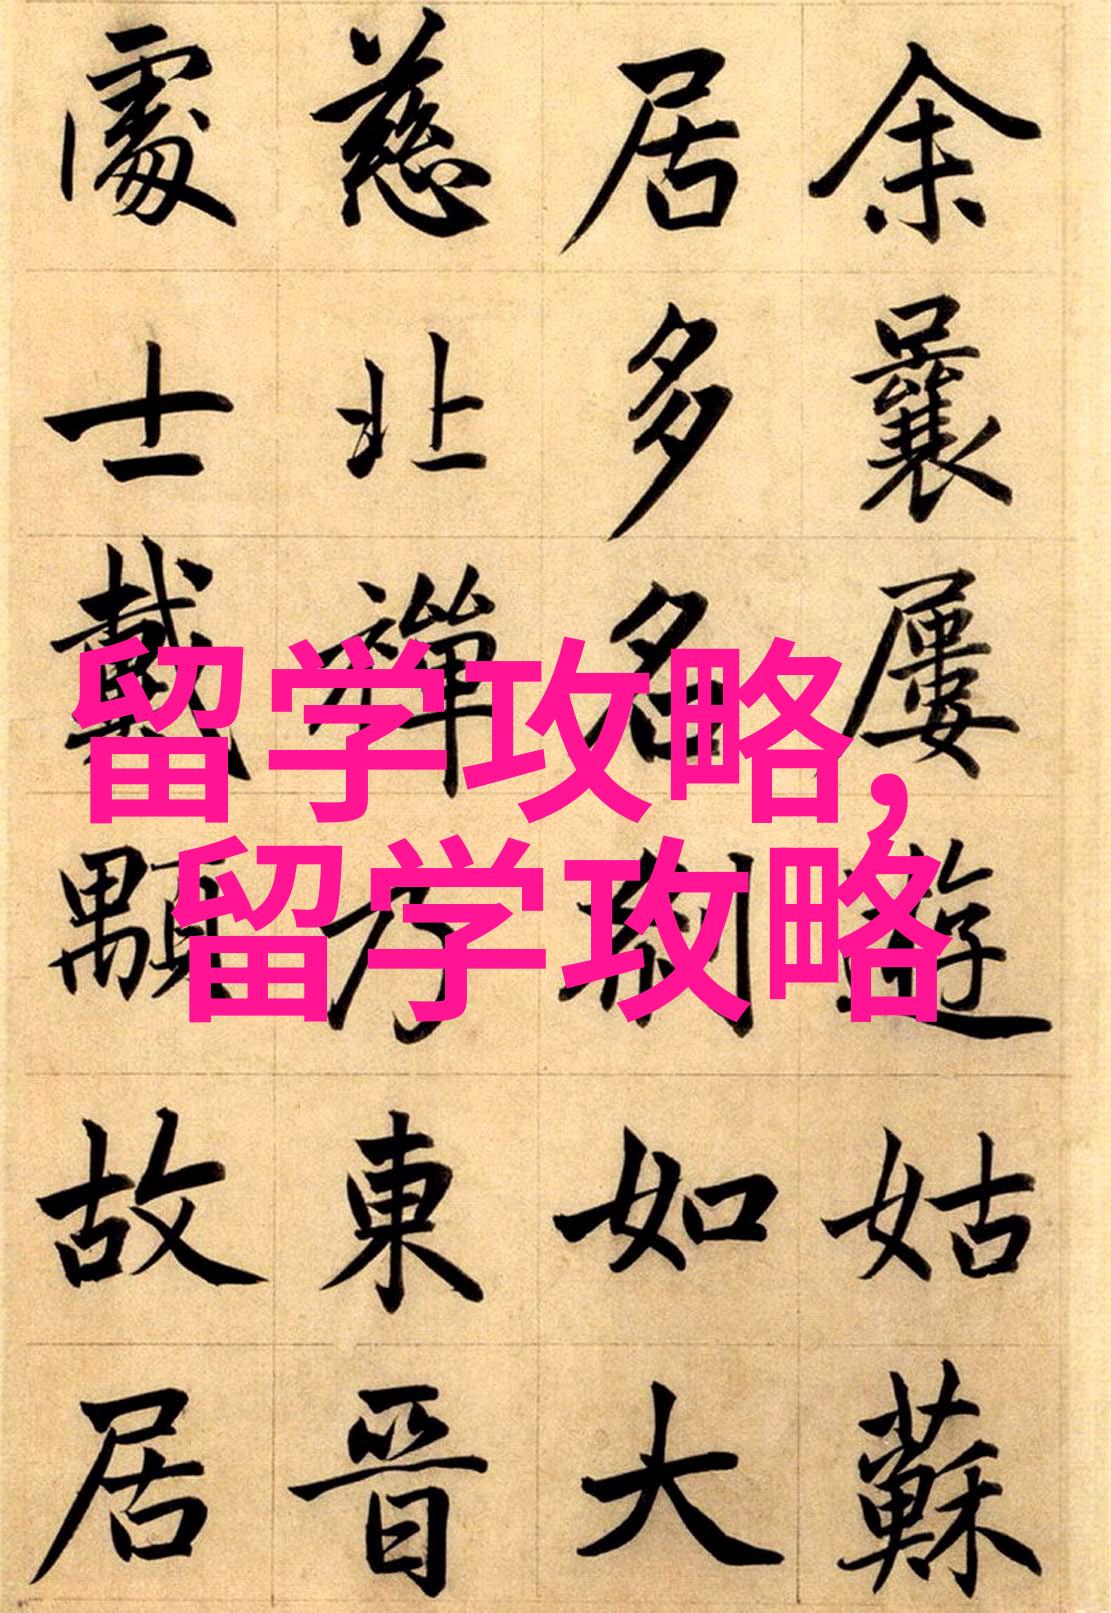 余曩屢遊姑蘇
居多名刹如大
慈北禪乃東晉
處士戴顒故居
留学攻略,
留学攻略